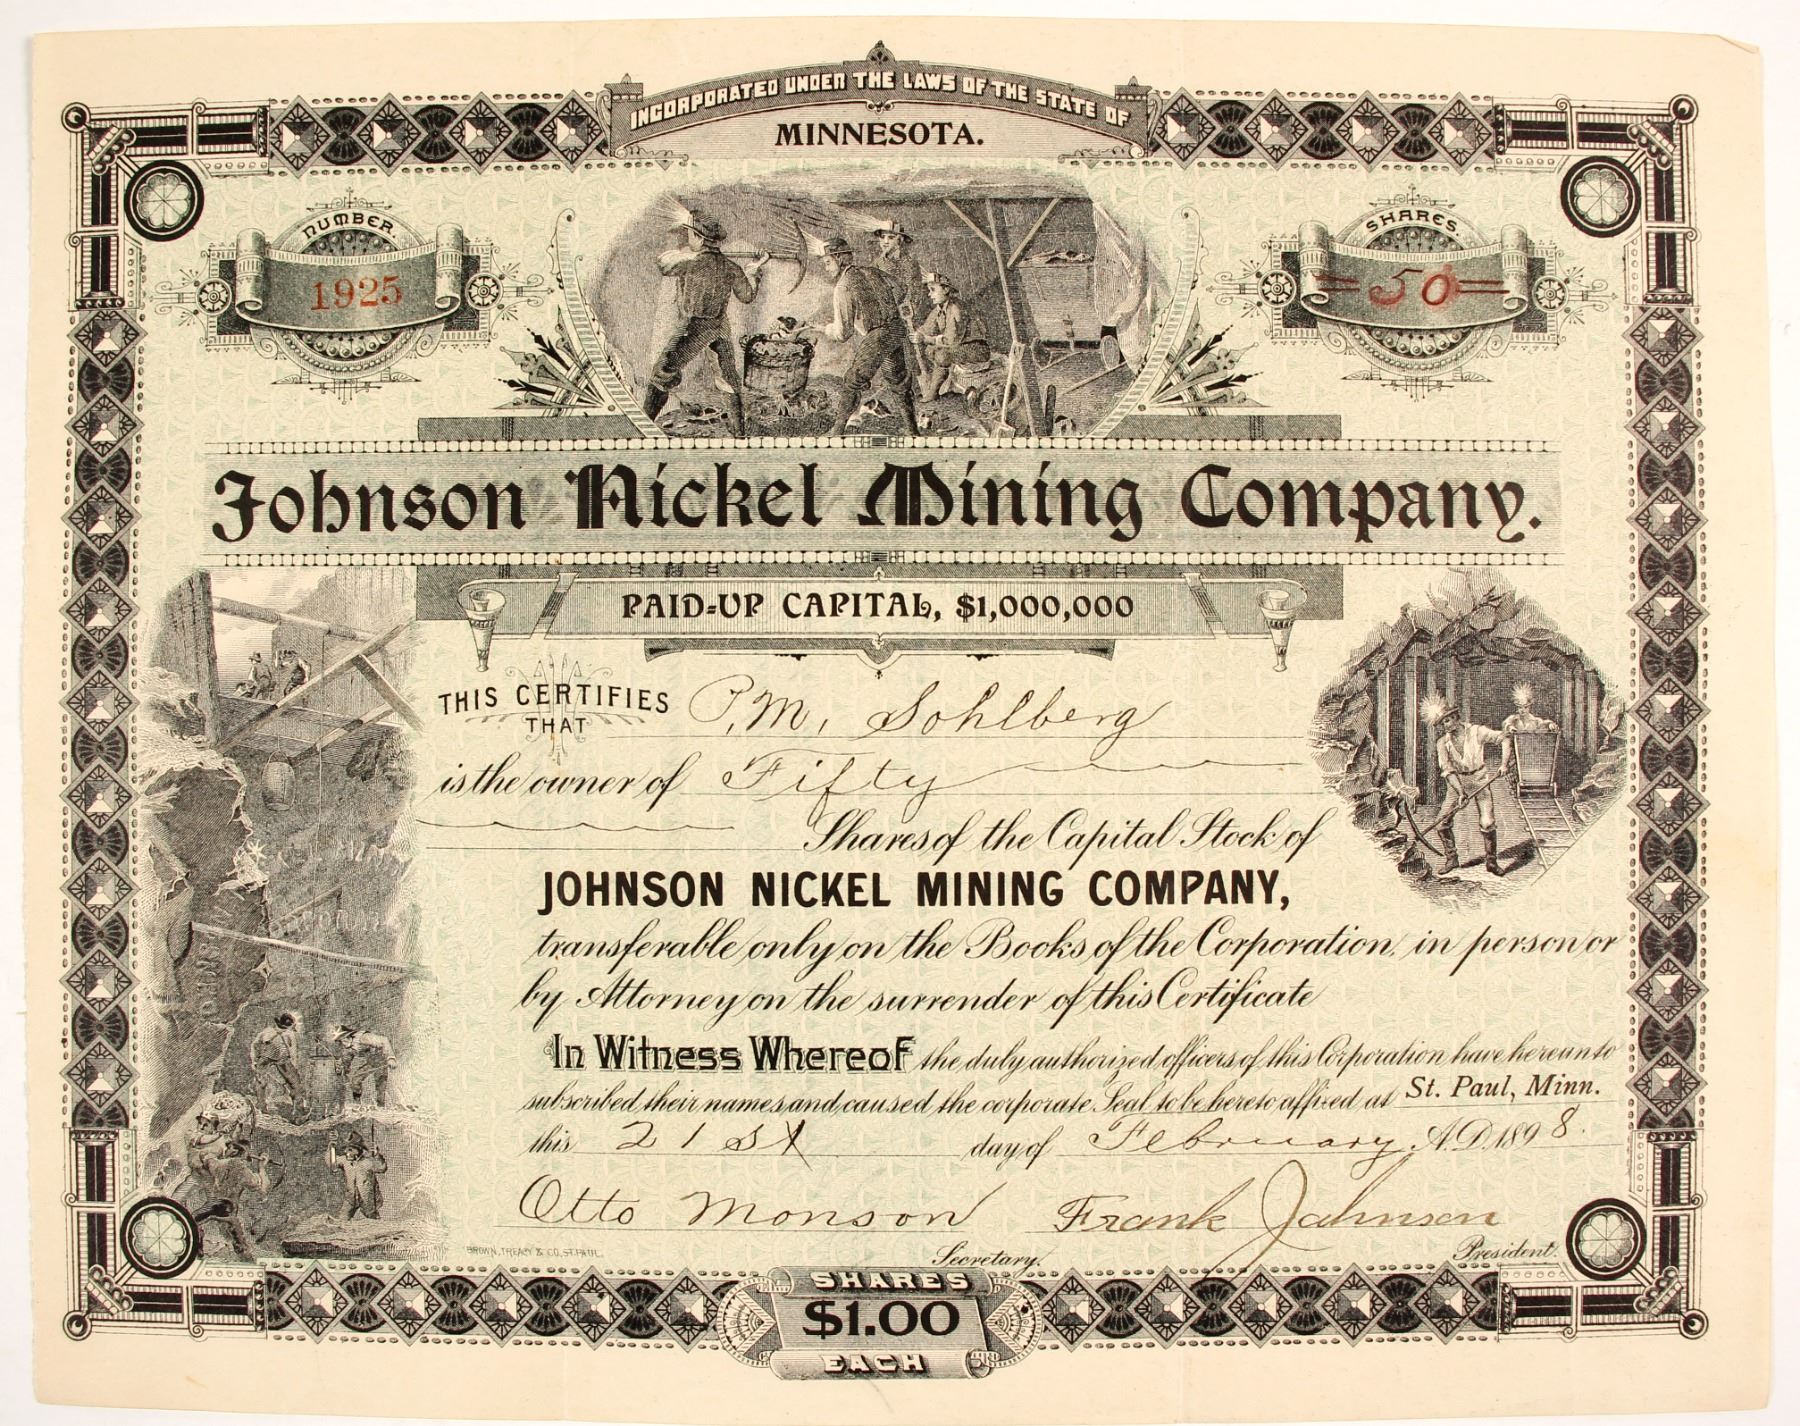 INCORPORATED UNDER THE LAWS OF THE STATE OF
MINNESOTA.
NUMBER.
1925
SHARES.
=50=
Johnson Nickel Mining Company.
PAID-UP CAPITAL, $1,000,000
THIS CERTIFIES THAT P.M. Sohlberg
is the owner of Fifty
Shares of the Capital Stock of
JOHNSON NICKEL MINING COMPANY,
transferable only on the Books of the Corporation, in person or
by Attorney on the surrender of this Certificate
In Witness Whereof the duly authorized officers of this Corporation have hereunto
subscribed their names and caused the corporate Seal to be hereto affixed at St. Paul, Minn.
this 21st day of February A.D. 1898.
Otto Monson Frank Johnson
Secretary. President.
BROWN, TREACY & CO. ST. PAUL.
SHARES
$1.00
EACH